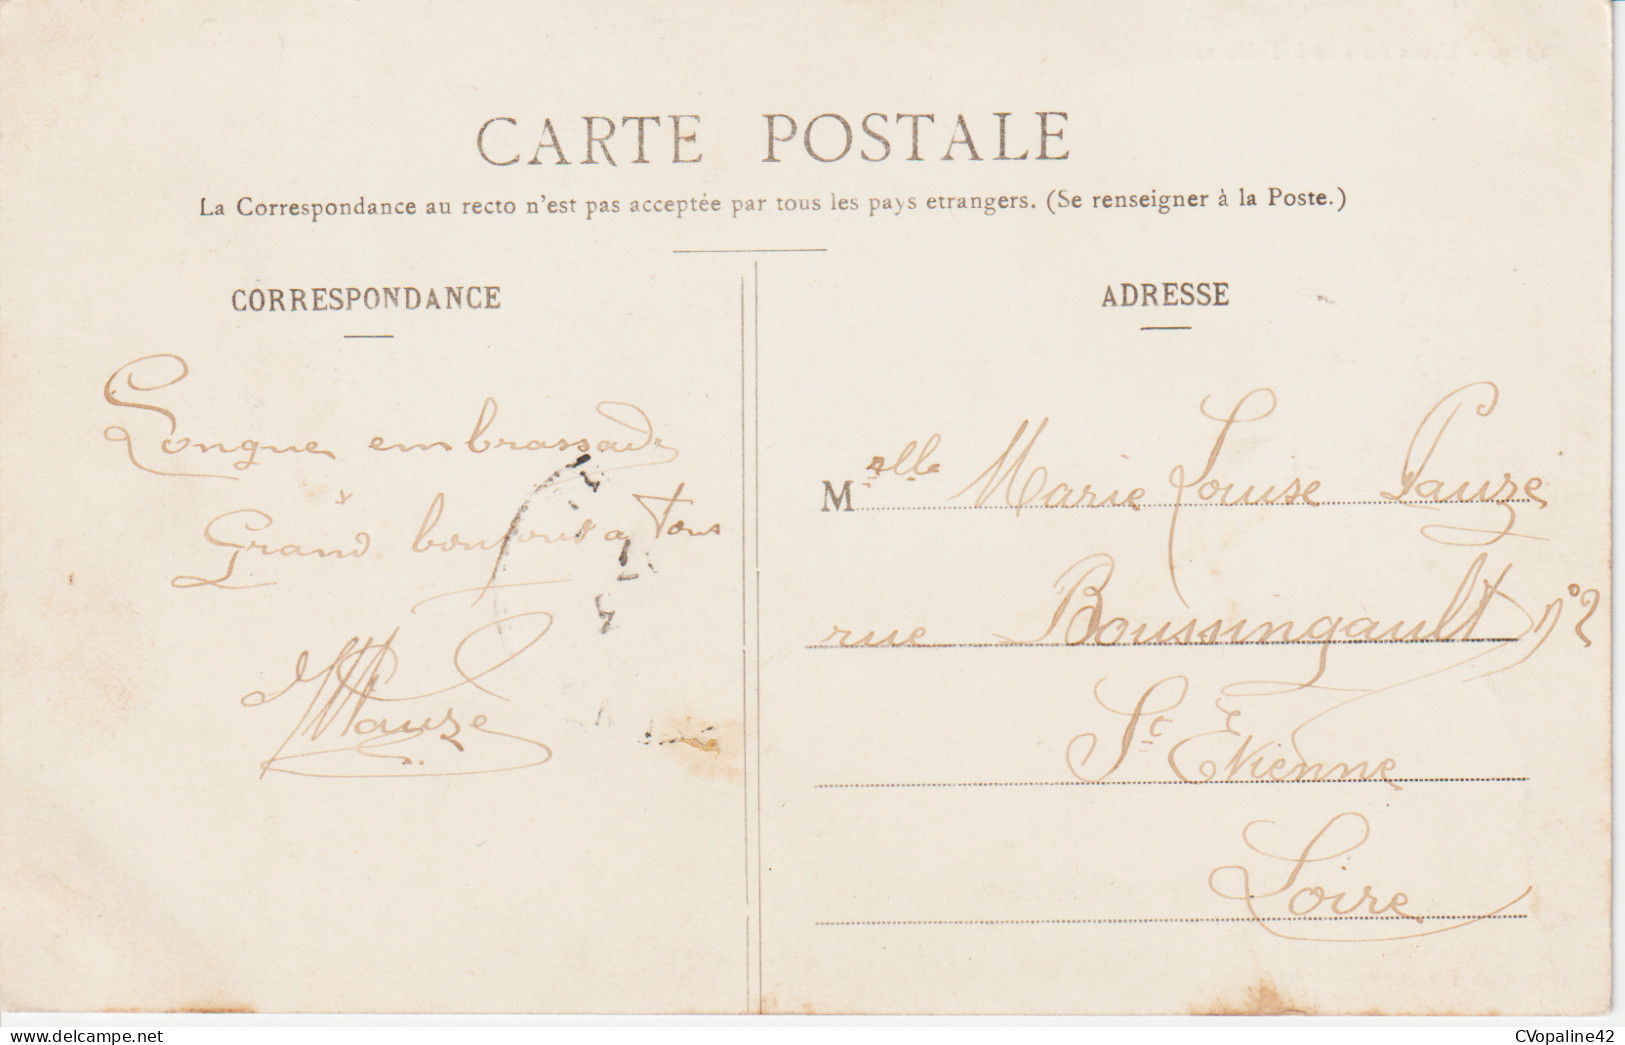 CARTE POSTALE
La Correspondance au recto n'est pas acceptée par tous les pays etrangers. (Se renseigner à la Poste.)
CORRESPONDANCE
Longue embrassade
Grand bonjour a Tous
Pauze
ADRESSE
Melle Marie Louise Pauze
rue Boussingault No 2
St Etienne
Loire
www.delcampe.net
CVopaline42